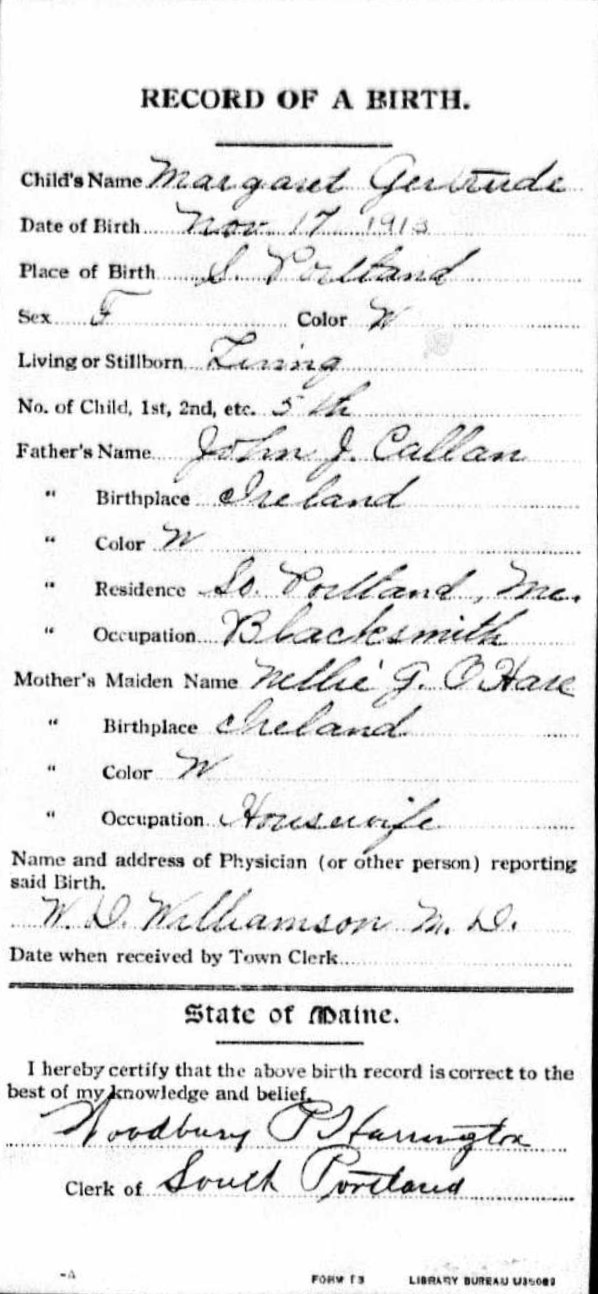 RECORD OF A BIRTH.
Child's Name Margaret Gertrude
Date of Birth Nov. 17 1913
Place of Birth S. Portland
Sex F Color W
Living or Stillborn Living
No. of Child, 1st, 2nd, etc. 5th
Father's Name John J. Callan
" Birthplace Ireland
" Color W
" Residence So. Portland, Me.
" Occupation Blacksmith
Mother's Maiden Name Nellie G. O'Hare
" Birthplace Ireland
" Color W
" Occupation Housewife
Name and address of Physician (or other person) reporting
said Birth.
W. D. Williamson M. D.
Date when received by Town Clerk
State of Maine.
I hereby certify that the above birth record is correct to the
best of my knowledge and belief.
Woodbury P Harrington
Clerk of South Portland
FORM 13 LIBRARY BUREAU